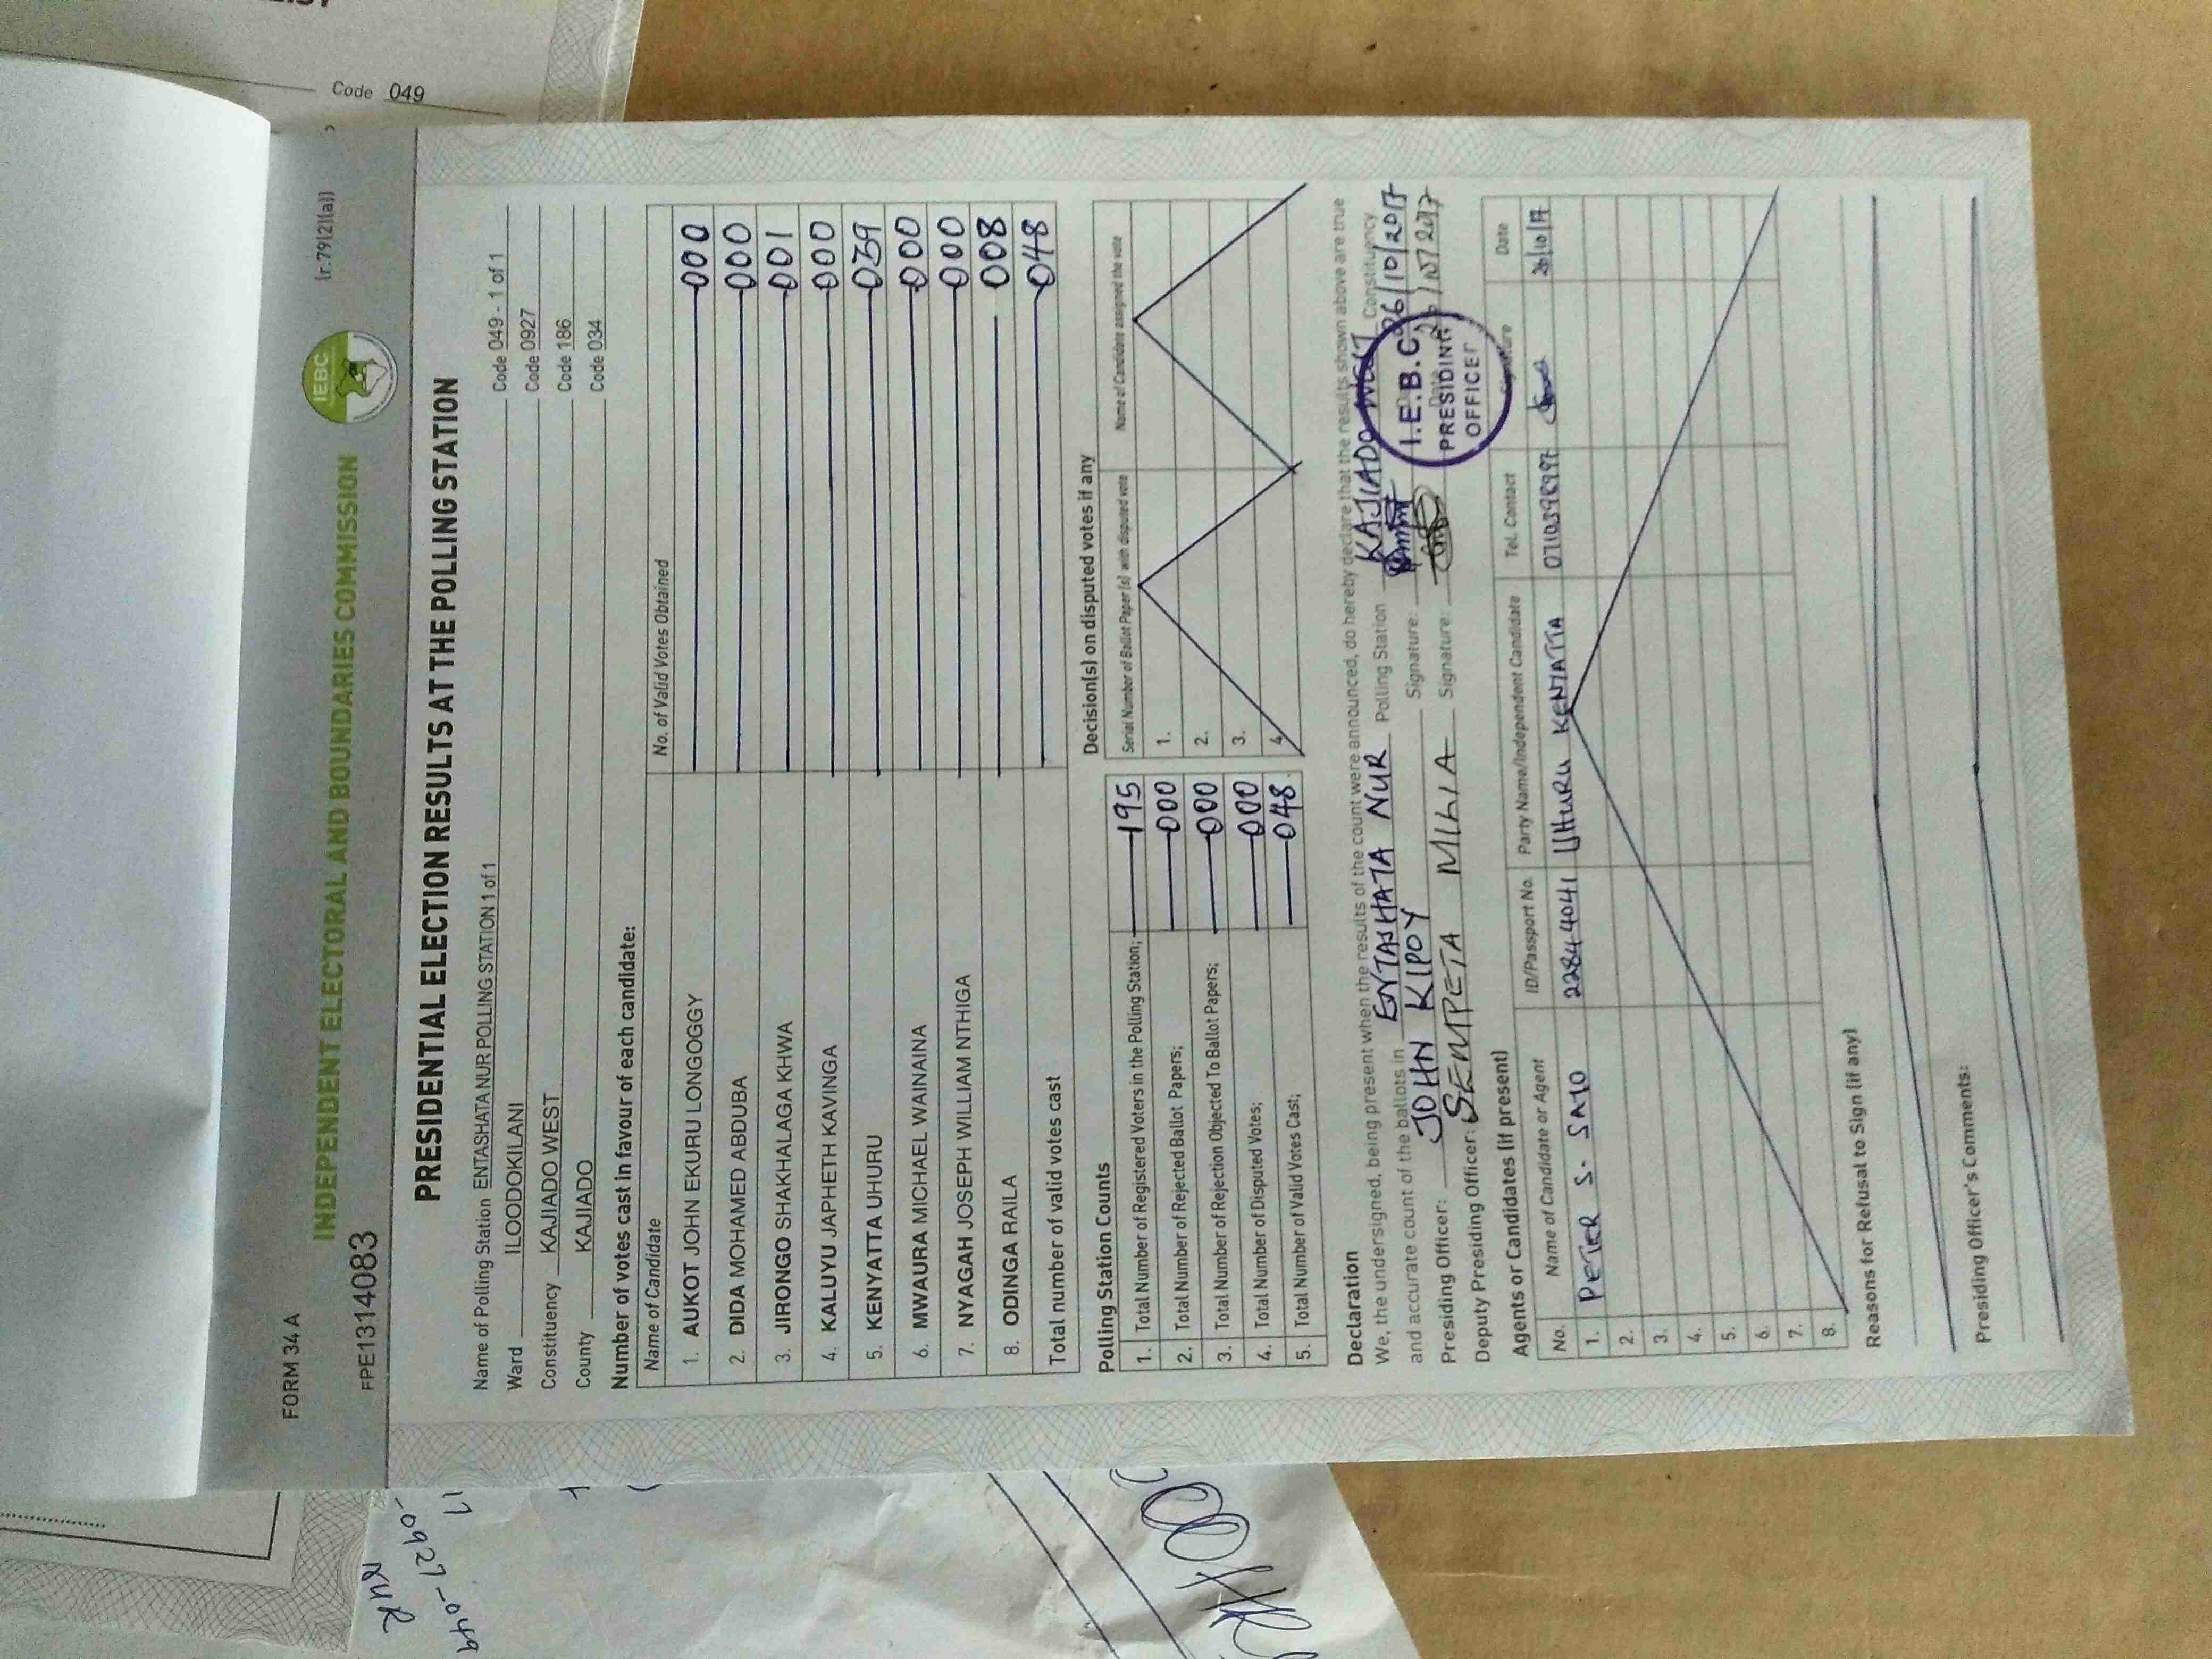 Code 049
FORM 34 A
INDEPENDENT ELECTORAL AND BOUNDARIES COMMISSION
IEBC
(r.79(2)(a))
FPE1314083
PRESIDENTIAL ELECTION RESULTS AT THE POLLING STATION
Name of Polling Station ENTASHATA NUR POLLING STATION 1 of 1 Code 049 - 1 of 1
Ward ILOODOKILANI Code 0927
Constituency KAJIADO WEST Code 186
County KAJIADO Code 034
Number of votes cast in favour of each candidate:
Name of Candidate No. of Valid Votes Obtained
1. AUKOT JOHN EKURU LONGOGGY 000
2. DIDA MOHAMED ABDUBA 000
3. JIRONGO SHAKHALAGA KHWA 001
4. KALUYU JAPHETH KAVINGA 000
5. KENYATTA UHURU 039
6. MWAURA MICHAEL WAINAINA 000
7. NYAGAH JOSEPH WILLIAM NTHIGA 000
8. ODINGA RAILA 008
Total number of valid votes cast 048
Polling Station Counts
1. Total Number of Registered Voters in the Polling Station; 195
2. Total Number of Rejected Ballot Papers; 000
3. Total Number of Rejection Objected To Ballot Papers; 000
4. Total Number of Disputed Votes; 000
5. Total Number of Valid Votes Cast; 048
Decision(s) on disputed votes if any
Serial Number of Ballot Paper(s) with disputed vote Name of Candidate assigned the vote
1.
2.
3.
4.
Declaration
We, the undersigned, being present when the results of the count were announced, do hereby declare that the results shown above are true
and accurate count of the ballots in ENTASHATA NUR Polling Station KAJIADO WEST Constituency
Presiding Officer: JOHN KIPOY Signature: 26/10/2017
Deputy Presiding Officer: SEMPETA MILIA Signature:
I.E.B.C
PRESIDING
OFFICER
Agents or Candidates (if present)
No. Name of Candidate or Agent ID/Passport No. Party Name/Independent Candidate Tel. Contact Signature Date
1. PETER S. SATO 22844041 UHURU KENYATTA 0710398997 26/10/17
2.
3.
4.
5.
6.
7.
8.
Reasons for Refusal to Sign (if any)
Presiding Officer's Comments:
-0927-049
NUR